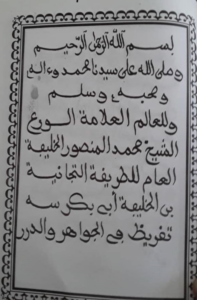 بسم الله الرحمن الرحيم
وصلى الله على سيدنا محمد وءاله
وصحبه وسلم
وللعالم العلامة الورع
الشيخ محمد المنصور الخليفة
العام للطريقة التجانية
بن الخليفة أبي بكر سه
تفريظ في الجواهر والدرر